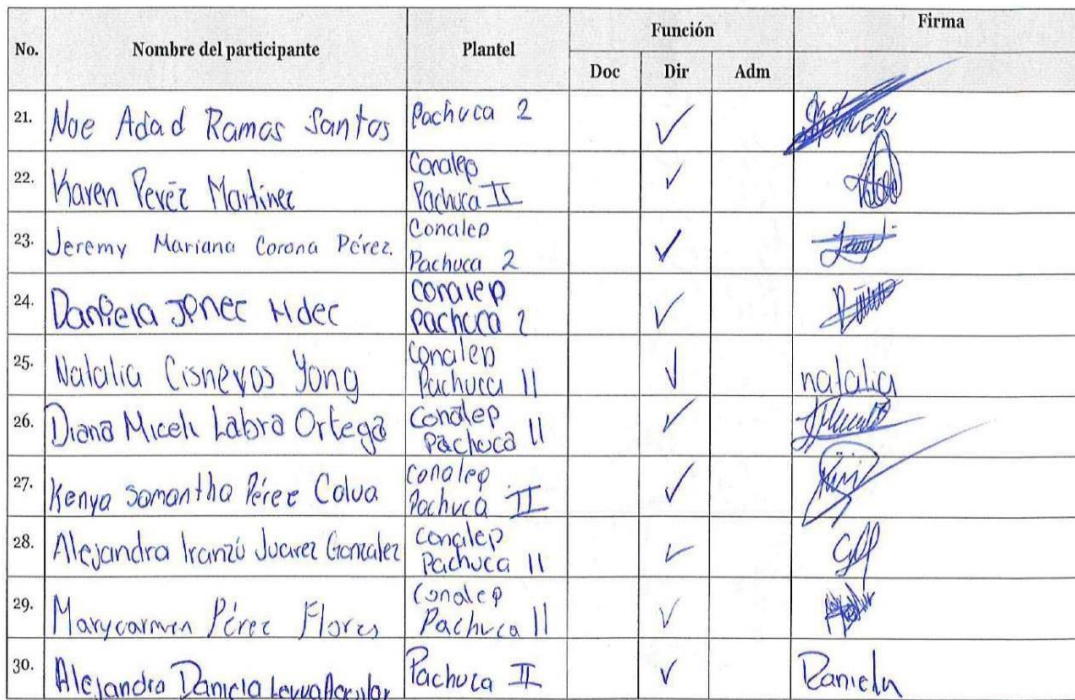 No. Nombre del participante Plantel Función Firma
Doc Dir Adm
21. Noe Adad Ramos Santos Pachuca 2
22. Karen Peréz Martinez Conalep
Pachuca II
23. Jeremy Mariana Corona Pérez. Conalep
Pachuca 2
24. Daniela Hdez Conalep
Pachuca 2
25. Natalia Cisneros Yong Conalep
Pachuca II natalia
26. Diana Miceli Labra Ortega Conalep
Pachuca II
27. Kenya Samantha Pérez Calva Conalep
Pachuca II
28. Alejandra Iranzú Juarez Gonzalez Conalep
Pachuca II
29. Marycarmen Pérez Flores Conalep
Pachuca II
30. Alejandra Daniela Pachuca II Daniela